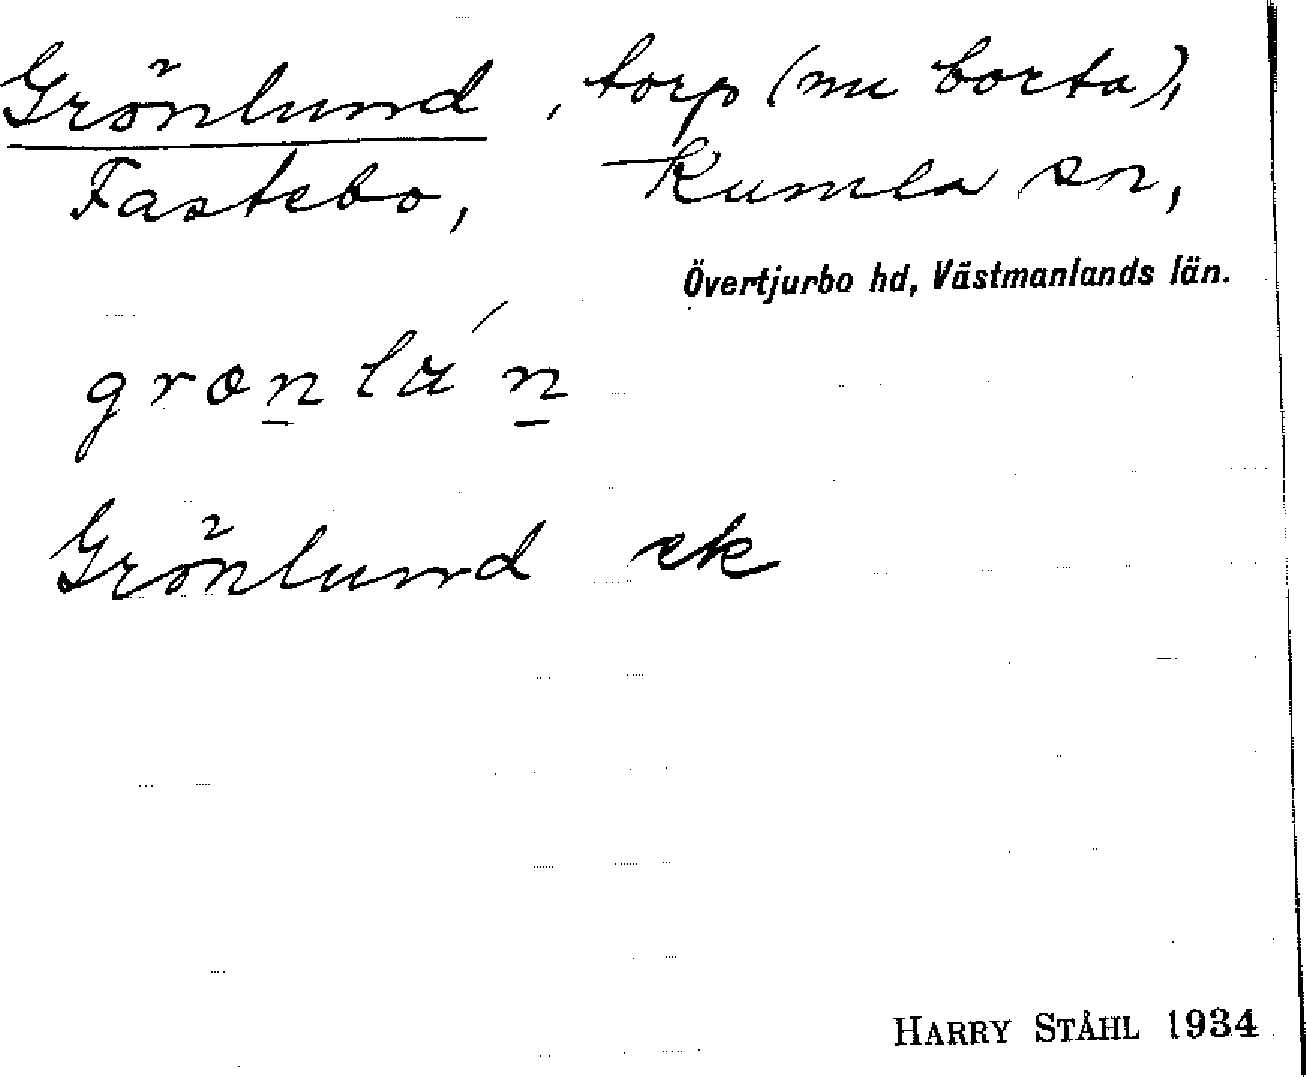 Grönlund, torp (nu borta),
Fastebo, Kumla sn,
Övertjurbo hd, Västmanlands län.
Grönlund ek
HARRY STÅHL 1934